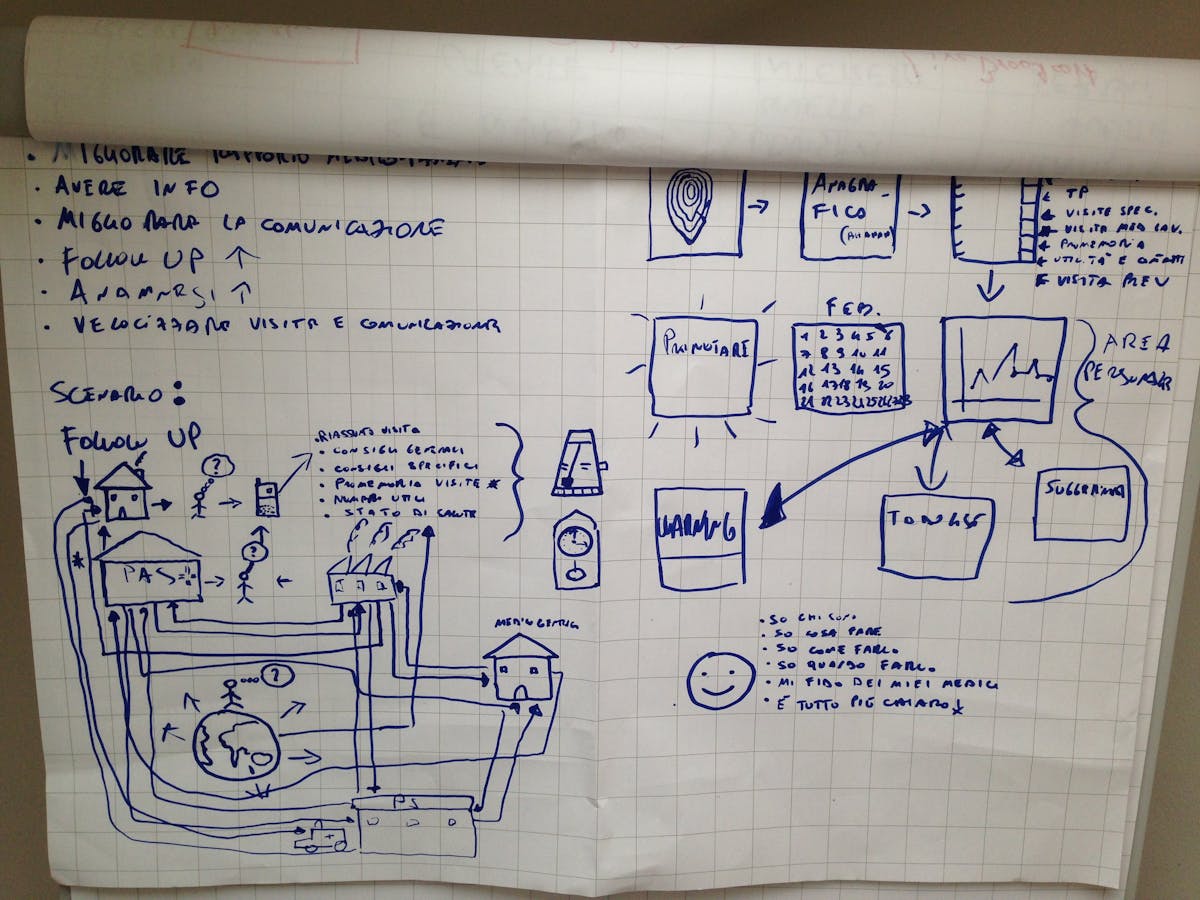 MIGLIORARE RAPPORTO
• AVERE INFO
• MIGLIORARE LA COMUNICAZIONE
• FOLLOW UP ↑
• ANAMNESI ↑
• VELOCIZZARE VISITE E COMUNICAZIONE
SCENARIO:
FOLLOW UP
• RIASSUNTO VISITA
• CONSIGLI GENERALI
• CONSIGLI SPECIFICI
• PROMEMORIA VISITE *
• NUMERI UTILI
• STATO DI SALUTE
?
?
*
PAS
MEDICO
?
PS
ANAGRA-
FICO
TP
VISITE SPEC.
VISITA MED LAV.
PROMEMORIA
UTILITÀ E
VISITA PREV
PRENOTARE
FEB.
1 2 3 4 5 6
7 8 9 10 11
12 13 14 15
16 17 18 19 20
21 22 23 24 25 26 27 28
AREA
PERSONALE
WARNING
SUGGERIMENTI
• SO CHI SONO
• SO COSA FARE
• SO COME FARLO
• SO QUANDO FARLO
• MI FIDO DEI MIEI MEDICI
• È TUTTO PIÙ CHIARO